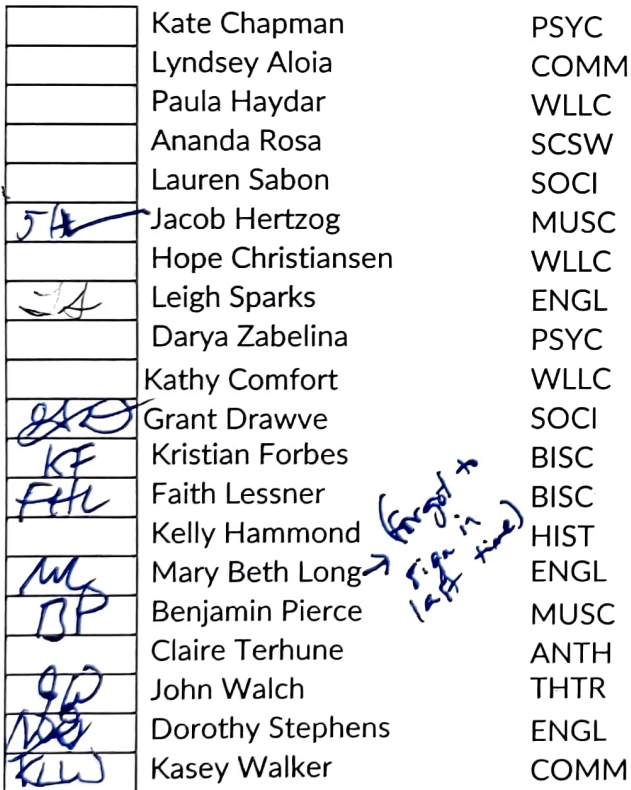 Kate Chapman PSYC
Lyndsey Aloia COMM
Paula Haydar WLLC
Ananda Rosa SCSW
Lauren Sabon SOCI
Jacob Hertzog MUSC
Hope Christiansen WLLC
Leigh Sparks ENGL
Darya Zabelina PSYC
Kathy Comfort WLLC
Grant Drawve SOCI
KF Kristian Forbes BISC
Faith Lessner BISC
Kelly Hammond HIST
Mary Beth Long → (forgot to sign in last time) ENGL
BP Benjamin Pierce MUSC
Claire Terhune ANTH
John Walch THTR
Dorothy Stephens ENGL
KLW Kasey Walker COMM